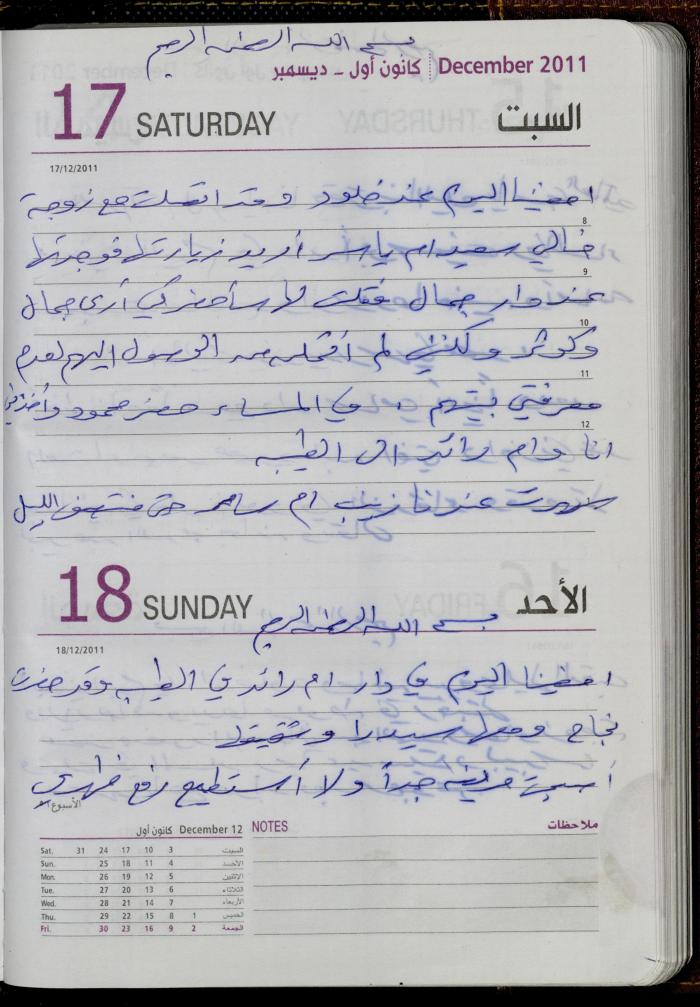 بسم الله الرحمن الرحيم
December 2011 كانون أول - ديسمبر
17 SATURDAY السبت
17/12/2011
امضينا اليوم عند خلود وقد اتصلت مع زوجة
8
خالي سعيد ام ياسر أريد زيارتها فوجدتها
9
عند دار جمال فقلت لها سأحضر كي أرى جمال
10
وكوثر ولكنني لم أتمكن من الوصول اليهم لعدم
11
معرفتي بيتهم . في المساء حضر محمود وأخذني
12
انا وام رائد الى الطيبه
سهرت عندنا زينب ام سامر حتى منتصف الليل
18 SUNDAY الأحد
بسم الله الرحمن الرحيم
18/12/2011
امضينا اليوم في دار ام رائد في الطيبه وقد حضرت
نجاح ومعها سيدرا وشقيقها
أصبحت مريضة جداً ولا أستطيع رفع ظهري
الأسبوع
December 12 كانون أول
NOTES ملاحظات
Sat. 31 24 17 10 3 السبت
Sun. 25 18 11 4 الأحد
Mon. 26 19 12 5 الاثنين
Tue. 27 20 13 6 الثلاثاء
Wed. 28 21 14 7 الأربعاء
Thu. 29 22 15 8 1 الخميس
Fri. 30 23 16 9 2 الجمعة